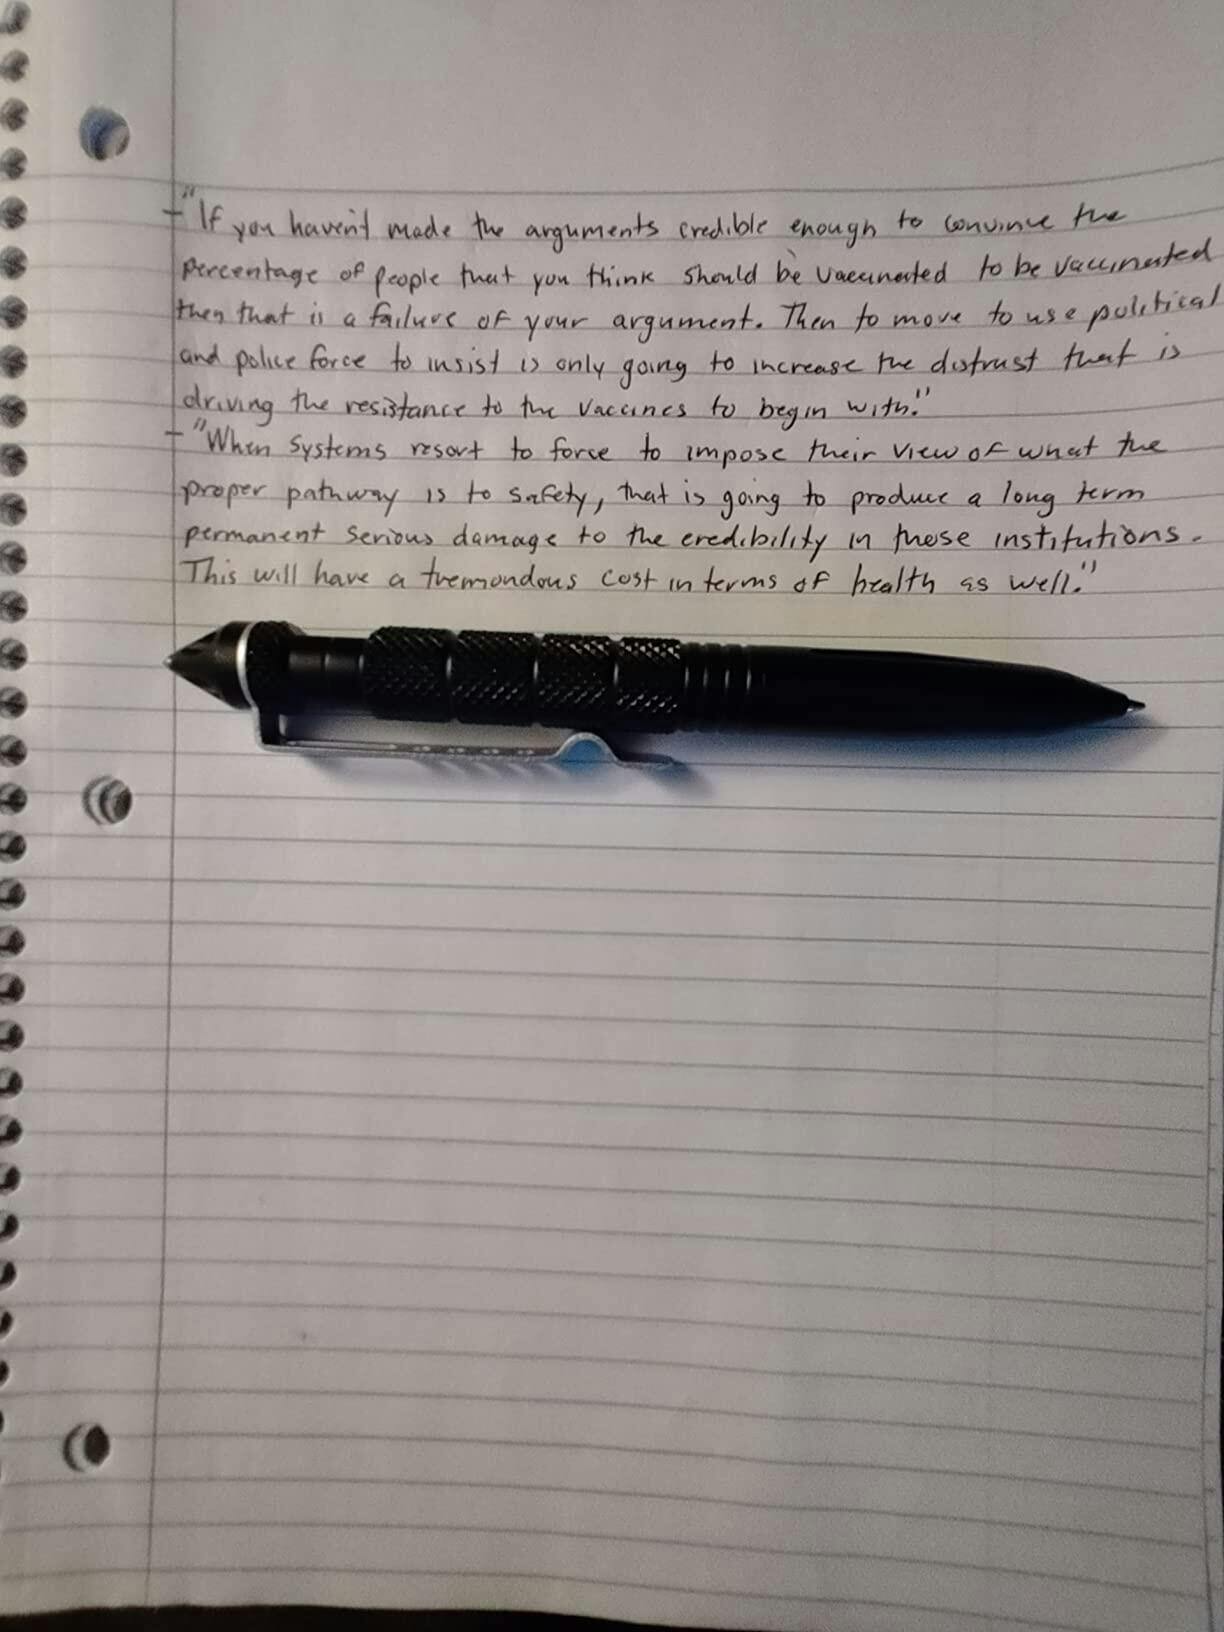 - "If you haven't made the arguments credible enough to convince the
percentage of people that you think should be vaccinated to be vaccinated
then that is a failure of your argument. Then to move to use political
and police force to insist is only going to increase the distrust that is
driving the resistance to the vaccines to begin with."
- "When systems resort to force to impose their view of what the
proper pathway is to safety, that is going to produce a long term
permanent serious damage to the credibility in those institutions.
This will have a tremondous cost in terms of health as well."